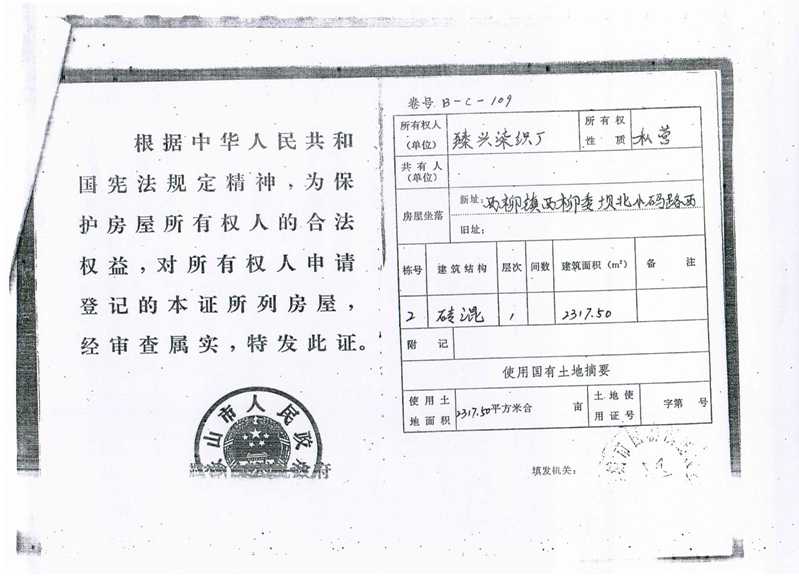 根据中华人民共和
国宪法规定精神，为保
护房屋所有权人的合法
权益，对所有权人申请
登记的本证所列房屋，
经审查属实，特发此证。
山市人民政
卷号 B-C-109
所有权人(单位) 臻兴染织厂 所有权性质 私营
共有人(单位)
房屋坐落 新址: 西柳镇西柳委坝北小码路西
旧址:
栋号 建筑结构 层次 间数 建筑面积(m²) 备注
2 砖混 1 2317.50
附记
使用国有土地摘要
使用土地面积 2317.50平方米合 亩 土地使用证号 字第 号
填发机关: